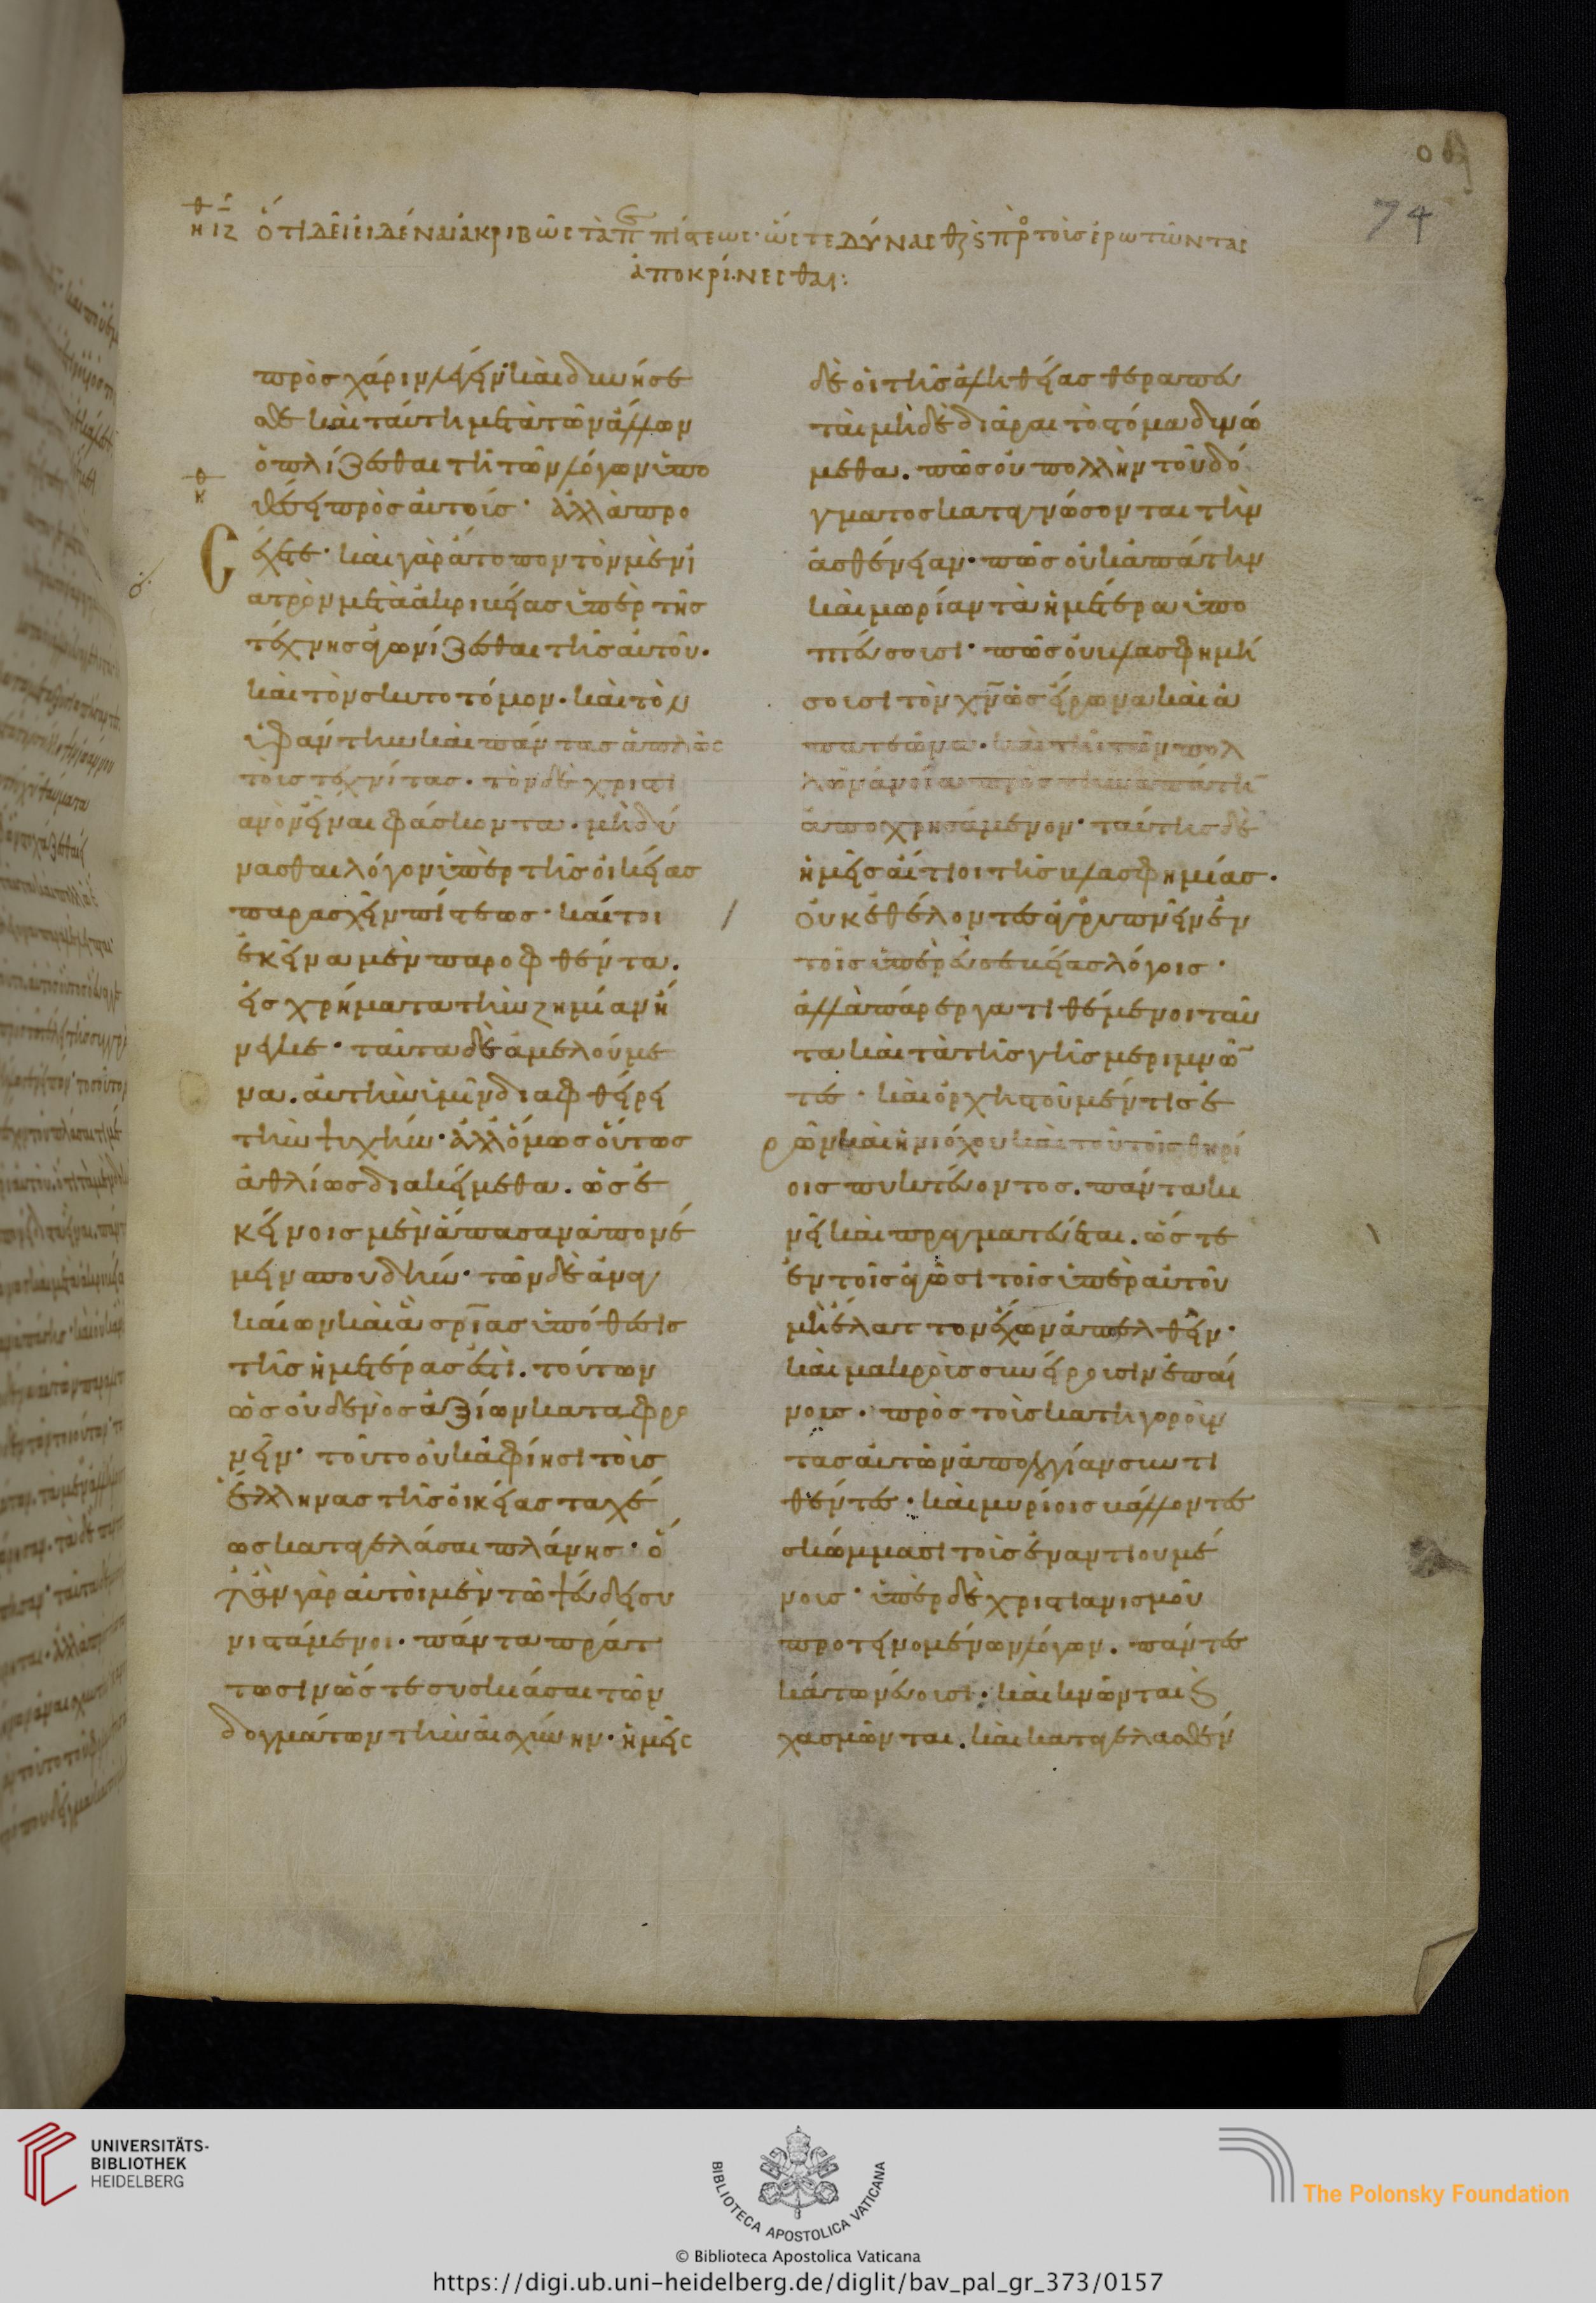 οθ
74
θ
ηιζ ὅτι δεῖ εἰδέναι ἀκριβῶς τὰ π πίστεως· ὥστε δύνασθς πρ τοῖς ἐρωτῶντας
ἀποκρίνεσθαι:
πρὸς χάριν λέγειν καὶ διηνήσε
σθε καὶ ταύτη μετὰ τῶν ἄλλων
ὁπλίζεσθαι τῆ τῶν λόγων ὑπο
θέσει πρὸς αὐτούς· ἀλλὰ προ
έχετε· καὶ γὰρ ἄτοπον τὸν μὲν ἰ
ατρὸν μετὰ ἀκριβείας ὑπὲρ τῆς
τέχνης ἀγωνίζεσθαι τῆς αὐτοῦ·
καὶ τὸν σκυτοτόμον· καὶ τὸν
ὑφάντην καὶ πάντας ἁπλῶς
τοὺς τεχνίτας· τὸν δὲ χριστι
ανὸν εἶναι φάσκοντα· μὴ δύ
νασθαι λόγον ὑπὲρ τῆς οἰκείας
παρασχεῖν πίστεως· καίτοι
ἐκεῖνα μὲν παροφθέντα·
εἰς χρήματα τὴν ζημίαν ἤ
νεγκε· ταῦτα δὲ ἀμελούμε
να· αὐτὴν ἡμῖν διαφθείρει
τὴν ψυχήν· ἀλλ' ὅμως οὕτως
ἀθλίως διακείμεθα· ὡς ἐ
κείνοις μὲν ἅπασαν ἀπονέ
μειν σπουδήν· τῶν δὲ ἀναγ
καίων καὶ ἃ σρίας ὑπόθεσις
τῆς ἡμετέρας ἐστὶ· τούτων
ὡς οὐδενὸς ἀξίων καταφρο
νεῖν· τοῦτο οὐκ ἀφίησι τοὺς
ἕλληνας τῆς οἰκείας ταχέ
ως καταγελάσαι πλάνης· ὅ
ταν γὰρ αὐτοὶ μὲν τῶ ψεύδει συ
νιστάμενοι· πάντα πράτ
τωσιν ὥστε συσκιάσαι τῶν
δογμάτων τὴν αἰσχύνην· ἡμεῖς
δὲ οἱ τῆς ἀληθείας θεραπευ
ταὶ μηδὲ διᾶραι τὸ στόμα δυνώ
μεθα· πῶς οὐ πολλὴν τοῦ δό
γματος καταγνώσονται τὴν
ἀσθένειαν· πῶς οὐκ ἀπάτην
καὶ μωρίαν τὰ ἡμέτερα ὑπο
πτεύσουσι· πῶς οὐ βλασφημή
σουσι τὸν χν ὡς εἴρωνα καὶ ἀ
πατεῶνα· καὶ τῆ τῶν πολ
λῶν ἀνοία πρὸς τὴν ἀπάτην
ἀποχρησάμενον· ταύτης δὲ
ἡμεῖς αἴτιοι τῆς βλασφημίας·
οὐκ ἐθέλοντες ἀγρυπνεῖν ἐν
τοῖς ὑπὲρ εὐσεβείας λόγοις·
ἀλλὰ πάρεργα τιθέμενοι ταῦ
τα καὶ τὰ τῆς γῆς μεριμνῶν
τες· καὶ ὀρχηστοῦ μέν τις ἐ
ρῶν καὶ ἡνιόχου καὶ τοῦ τοῖς θηρί
οις πυκτεύοντος· πάντα κι
νεῖ καὶ πραγματεύεται· ὥστε
ἐν τοῖς ἀγῶσι τοῖς ὑπὲρ αὐτοῦ
μὴ ἔλαττον ἔχων ἀπελθεῖν·
καὶ μακροὺς συνείρουσιν ἐπαί
νους· πρὸς τοὺς κατηγοροῦν
τας αὐτῶν ἀπολογίαν συντι
θέντες· καὶ μυρίοις βάλλοντες
σκώμμασι τοὺς ἐναντιουμέ
νους· ὑπὲρ δὲ χριστιανισμοῦ
προτεινομένων λόγων· πάντες
κάτω νεύουσι· καὶ κνῶνται
χασμῶνται· καὶ καταγελασθέν
UNIVERSITÄTS-
BIBLIOTHEK
HEIDELBERG
BIBLIOTECA APOSTOLICA VATICANA
The Polonsky Foundation
© Biblioteca Apostolica Vaticana
https://digi.ub.uni-heidelberg.de/diglit/bav_pal_gr_373/0157